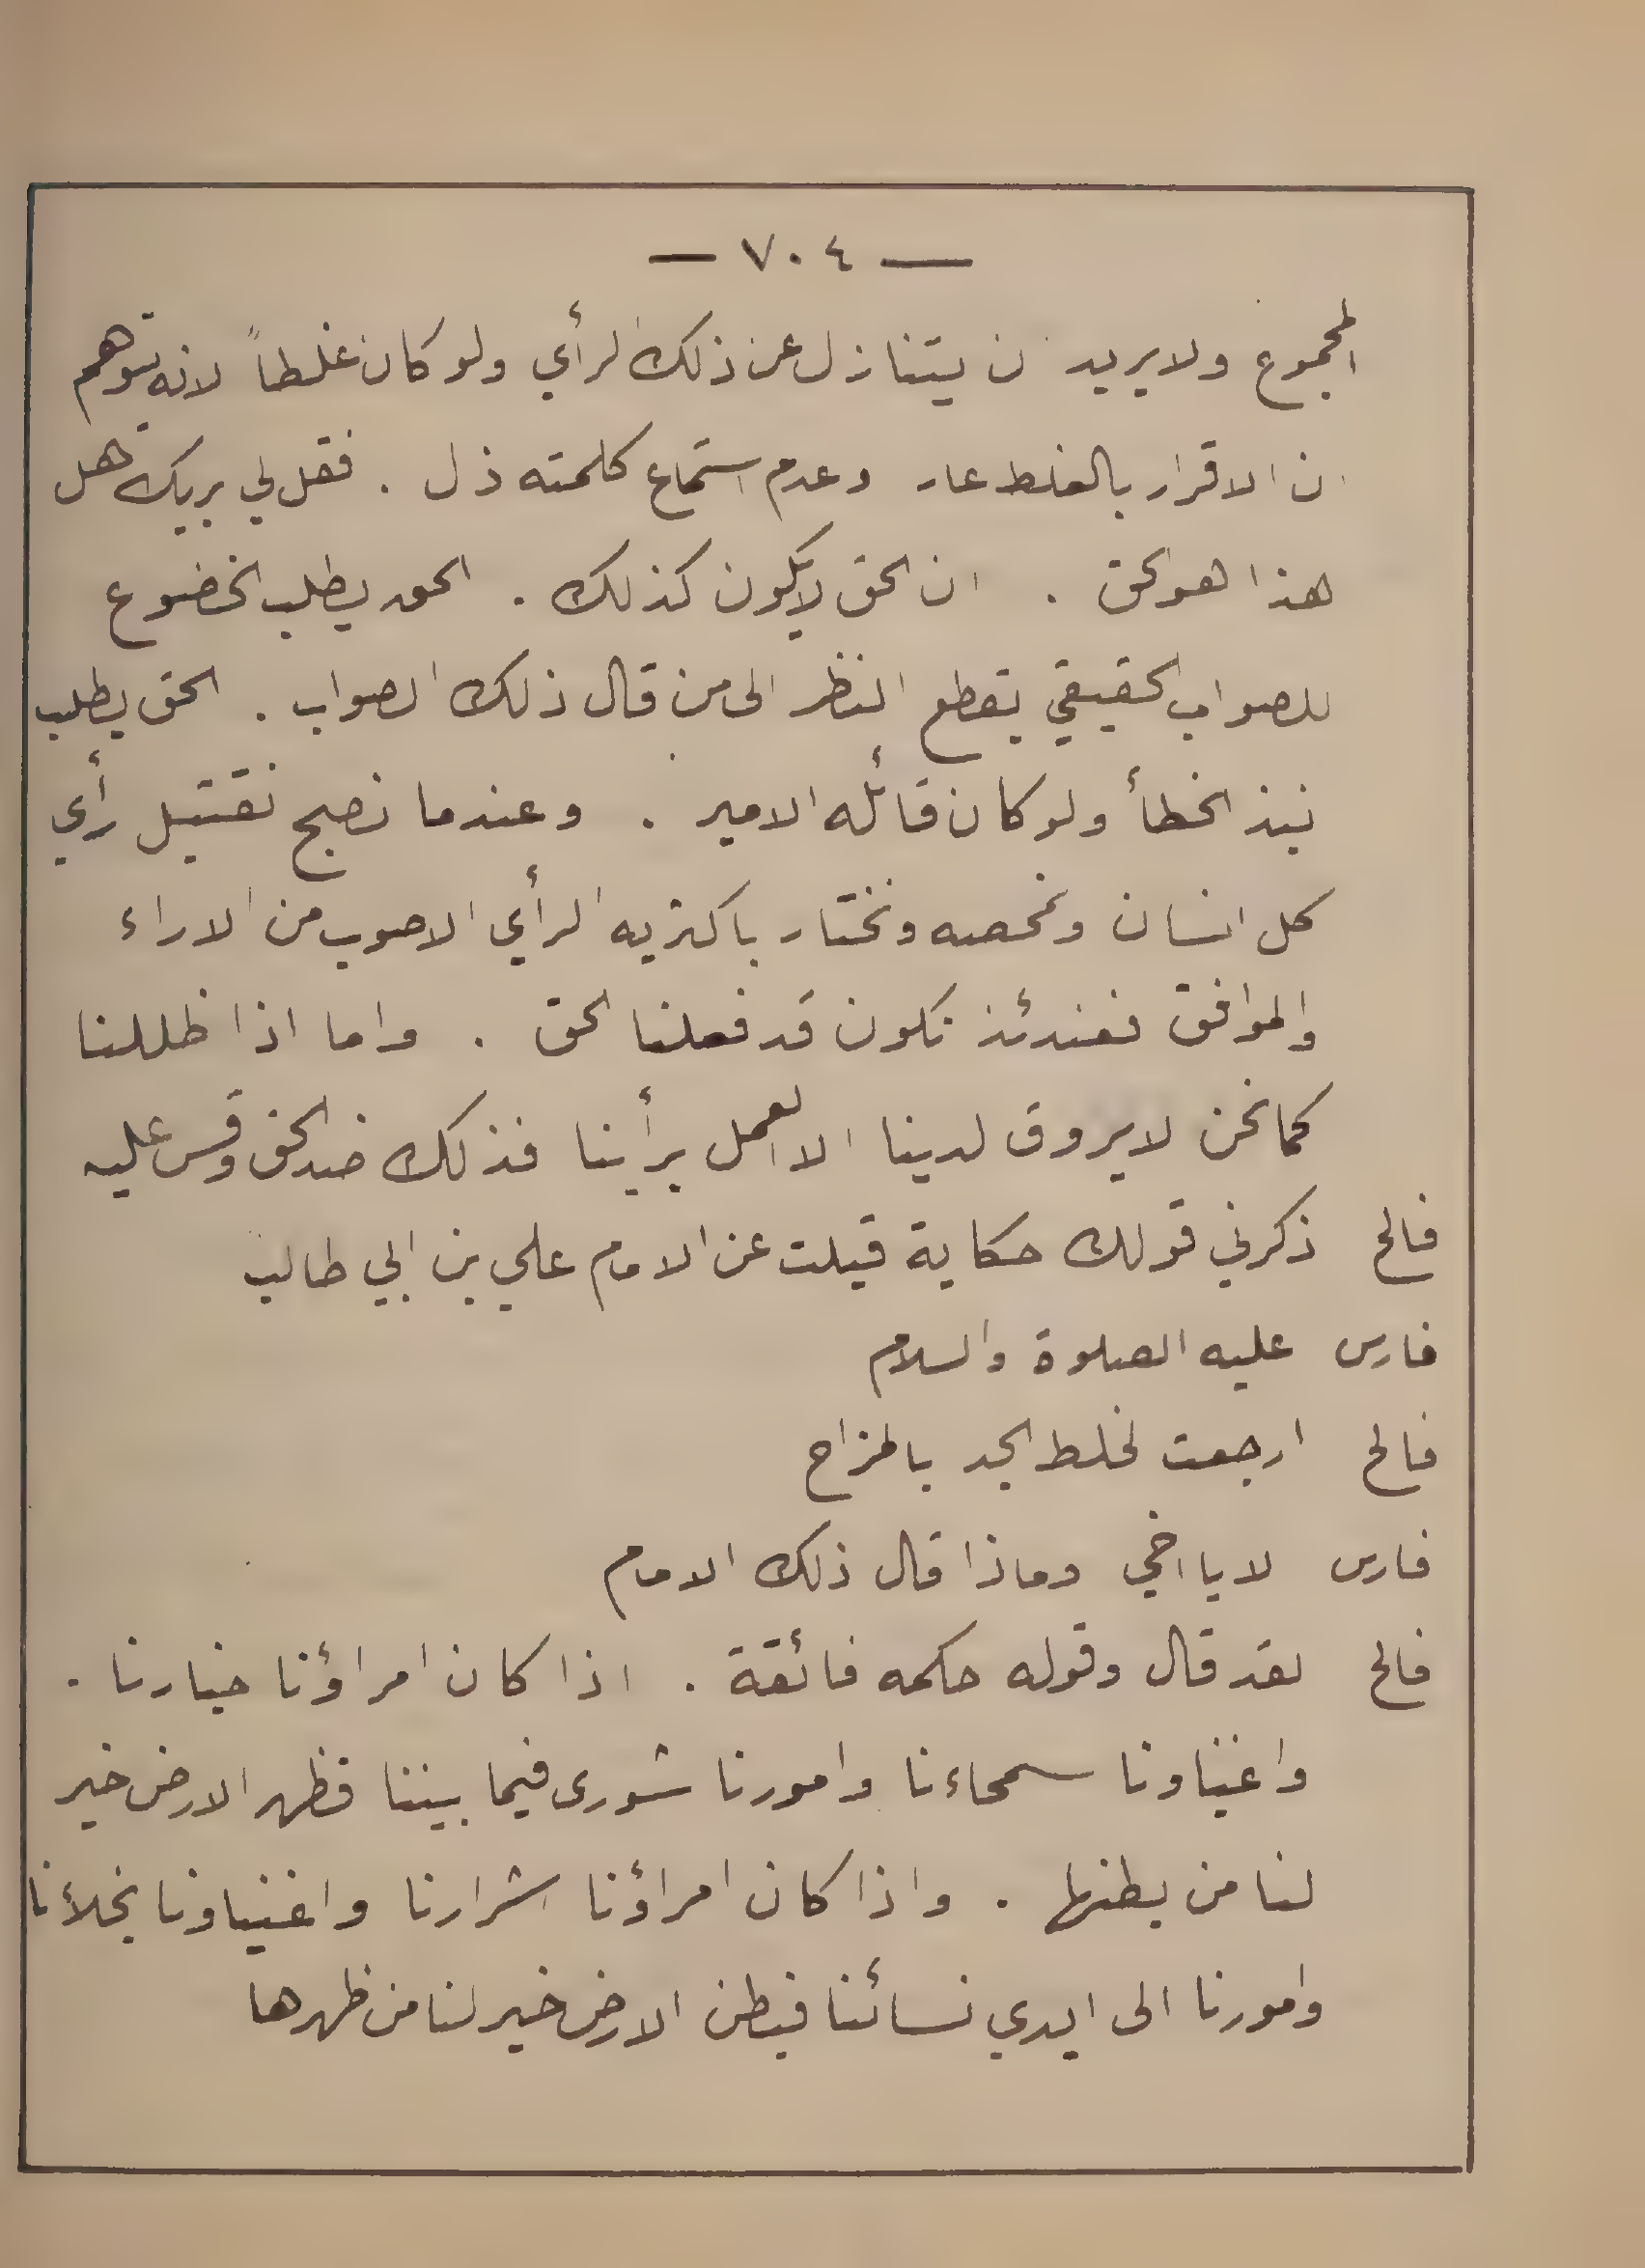 — ٧٠٤ —
المجموع ولا يريد ن يتنازل عن ذلك الرأي ولو كان غلطاً لانه يتوهم
ن الاقرار بالغلط عار وعدم استماع كلمته ذل . فقل لي بربك هل
هذا هو الحق . ان الحق لا يكون كذلك . الحق يطلب الخضوع
للصواب الحقيقي بقطع النظر الى من قال ذلك الصواب . الحق يطلب
نبذ الخطأ ولو كان قائله الامير . وعندما نصبح نقتبل رأي
كل انسان ونمحصه ونختار باكثريه الرأي الاصوب من الاراء
والموافق فعندئذ نكون قد فعلنا الحق . واما اذا ظللنا
كما نحن لا يروق لدينا الا العمل برأينا فذلك ضد الحق وقس عليه
فالح ذكرني قولك حكاية قيلت عن الامام علي بن ابي طالب
فارس عليه الصلوة والسلام
فالح ارجعت لخلط الجد بالمزاح
فارس لا يا اخي وماذا قال ذلك الامام
فالح لقد قال وقوله حكمه فائقة . اذا كان امراؤنا خيارنا .
واغنياونا سمحاءنا وامورنا شورى فيما بيننا فظهر الارض خير
لنا من بطنها . واذا كان امراؤنا اشرارنا واغنياونا بخلأنا
وامورنا الى ايدي نسائنا فبطن الارض خير لنا من ظهرها